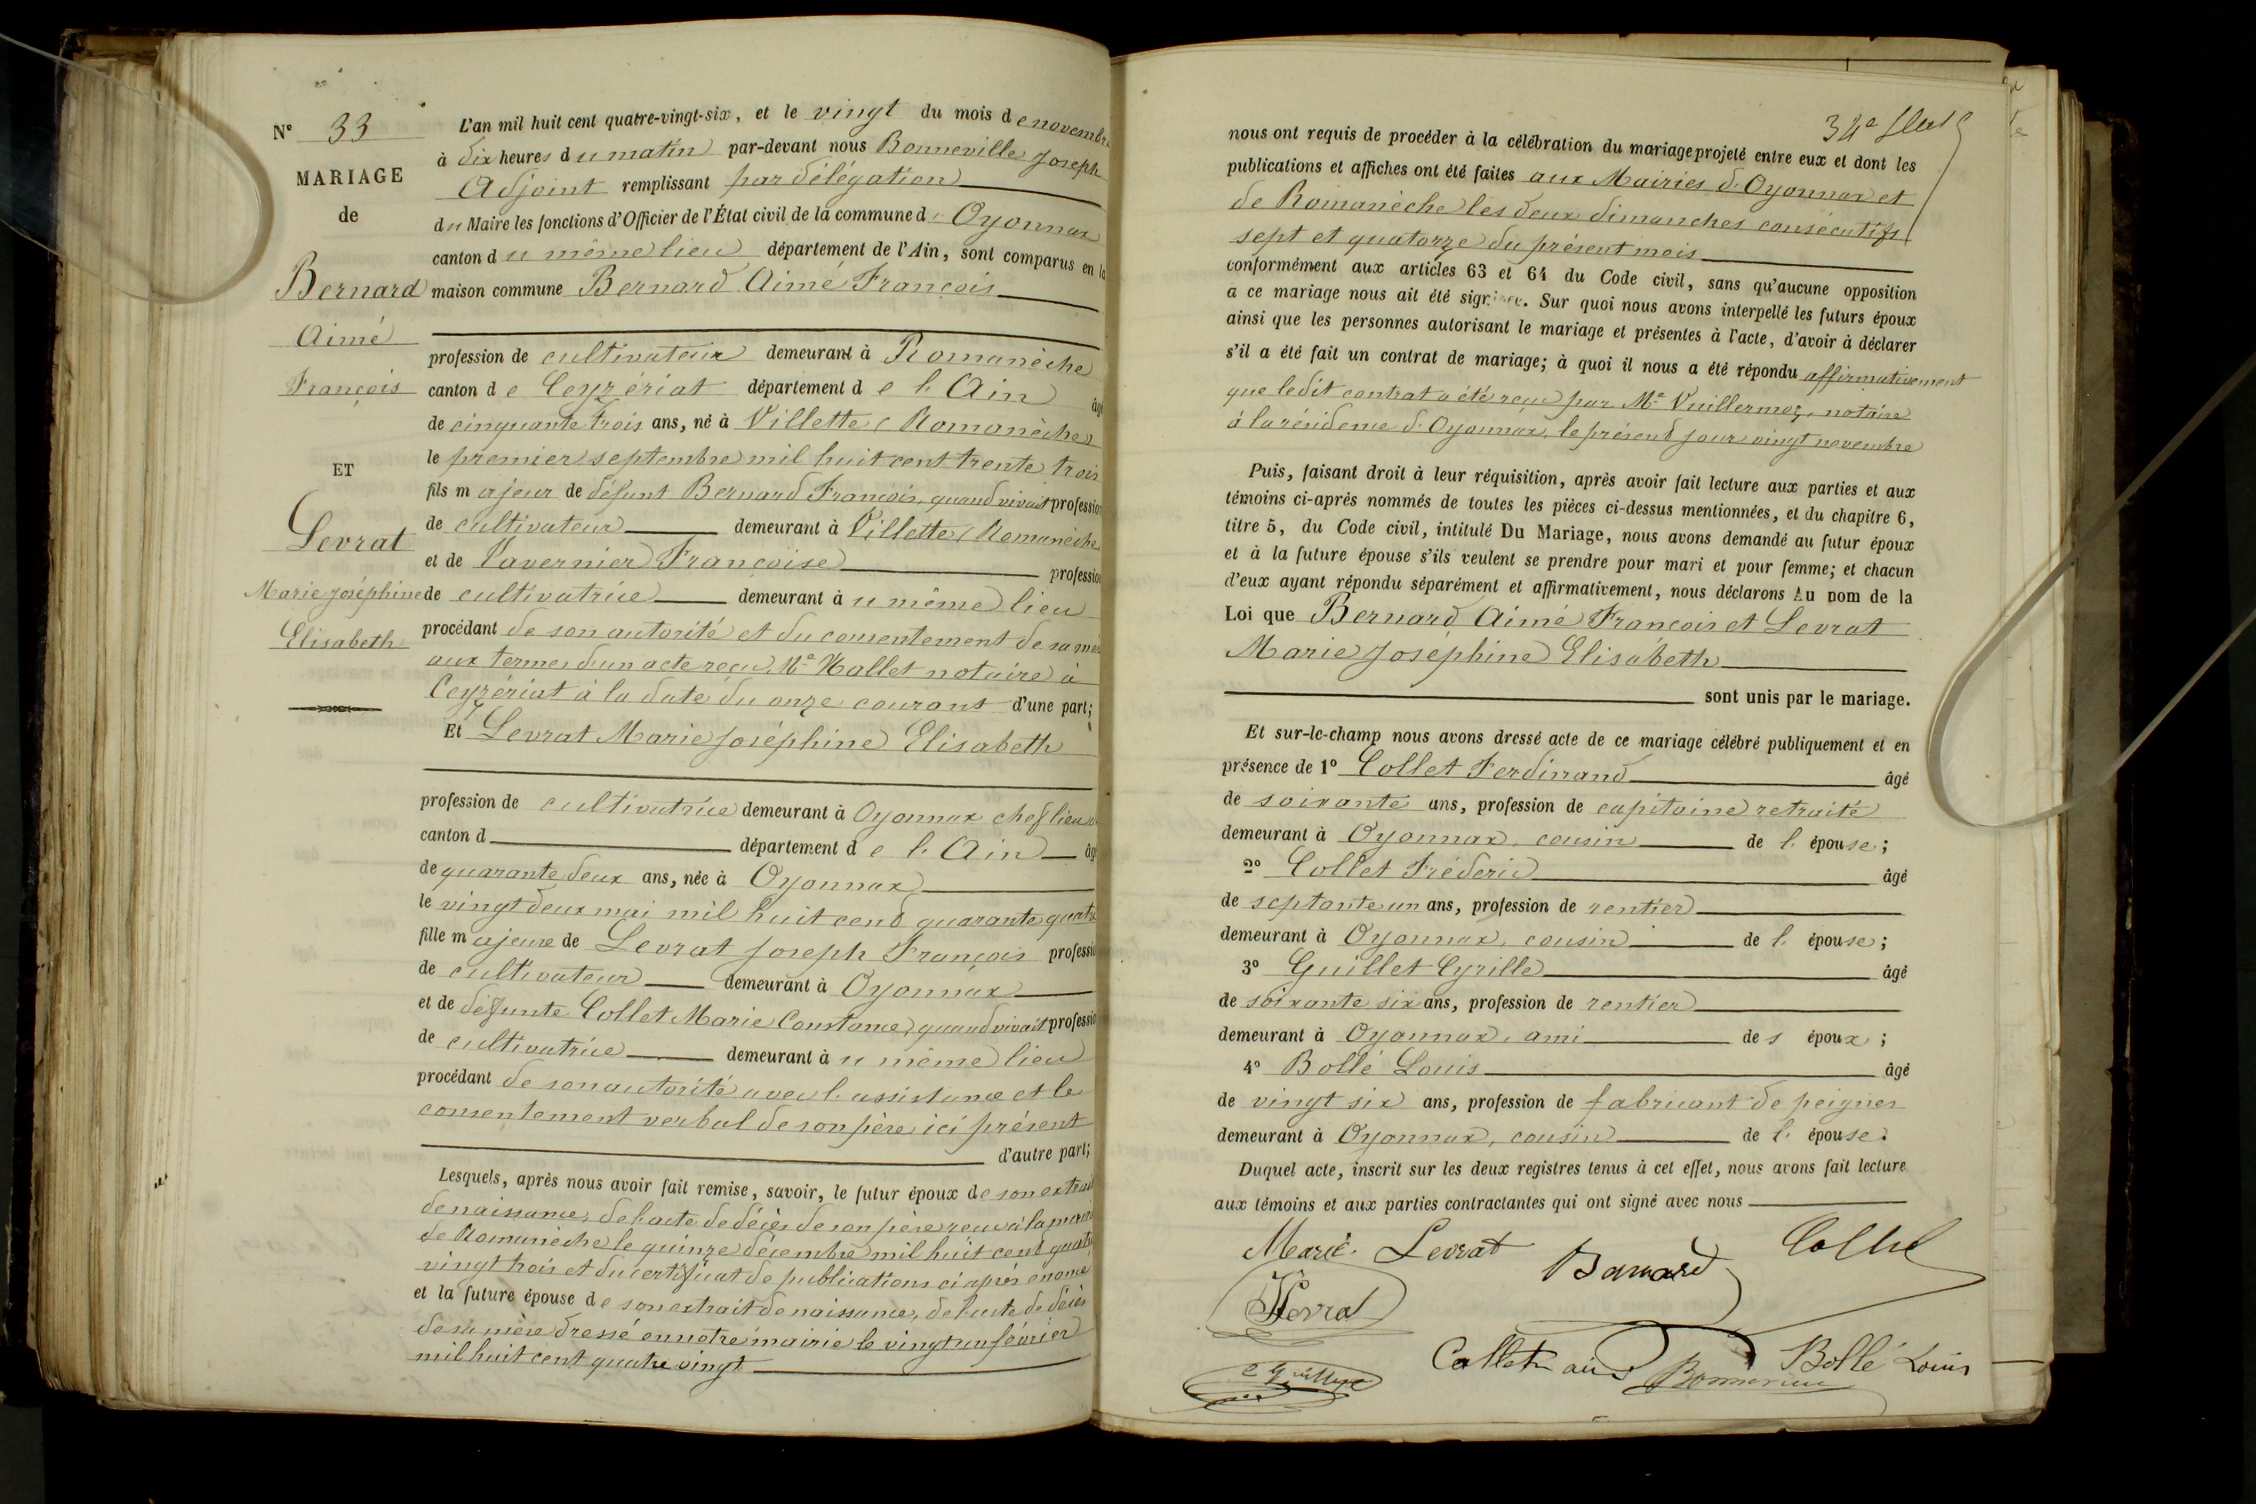 N° 33
MARIAGE
de
Bernard
Aimé
François
ET
Levrat
Marie Joséphine
Elisabeth
L'an mil huit cent quatre-vingt-six, et le vingt du mois de novembre
à dix heures du matin par-devant nous Bonneville Joseph
Adjoint remplissant par délégation
du Maire les fonctions d'Officier de l'État civil de la commune d'Oyonnax
canton du même lieu département de l'Ain, sont comparus en la
maison commune Bernard Aimé François
profession de cultivateur demeurant à Romanèche
canton de Ceyzériat département de l'Ain âgé
de cinquante trois ans, né à Villette (Romanèche)
le premier septembre mil huit cent trente trois
fils majeur de défunt Bernard François, quand vivait profession
de cultivateur demeurant à Villette (Romanèche
et de Tavernier Françoise profession
de cultivatrice demeurant au même lieu
procédant de son autorité et du consentement de sa mère
aux termes d'un acte reçu Me Hallet notaire à
Ceyzériat à la date du onze courant d'une part;
Et Levrat Marie Joséphine Elisabeth
profession de cultivatrice demeurant à Oyonnax chef lieu de
canton d département de l'Ain âgé
de quarante deux ans, née à Oyonnax
le vingt deux mai mil huit cent quarante quatre
fille majeure de Levrat Joseph François profession
de cultivateur demeurant à Oyonnax
et de défunte Collet Marie Constance, quand vivait profession
de cultivatrice demeurant au même lieu
procédant de son autorité avec l'assistance et le
consentement verbal de son père ici présent
d'autre part;
Lesquels, après nous avoir fait remise, savoir, le futur époux de son extrait
de naissance, de l'acte de décès de son père reçu à la mairie
de Romanèche le quinze décembre mil huit cent quatre
vingt trois et du certificat de publications ci après énoncé
et la future épouse de son extrait de naissance, de l'acte de décès
de sa mère dressé en notre mairie le vingt un février
mil huit cent quatre vingt
34e
nous ont requis de procéder à la célébration du mariage projeté entre eux et dont les
publications et affiches ont été faites aux Mairies d'Oyonnax et
de Romanèche les deux dimanches consécutifs
sept et quatorze du présent mois
conformément aux articles 63 et 64 du Code civil, sans qu'aucune opposition
a ce mariage nous ait été signifiée. Sur quoi nous avons interpellé les futurs époux
ainsi que les personnes autorisant le mariage et présentes à l'acte, d'avoir à déclarer
s'il a été fait un contrat de mariage; à quoi il nous a été répondu affirmativement
que ledit contrat a été reçu par Me Vuillermoz, notaire
à la résidence d'Oyonnax, le présent jour vingt novembre
Puis, faisant droit à leur réquisition, après avoir fait lecture aux parties et aux
témoins ci-après nommés de toutes les pièces ci-dessus mentionnées, et du chapitre 6,
titre 5, du Code civil, intitulé Du Mariage, nous avons demandé au futur époux
et à la future épouse s'ils veulent se prendre pour mari et pour femme; et chacun
d'eux ayant répondu séparément et affirmativement, nous déclarons Au nom de la
Loi que Bernard Aimé François et Levrat
Marie Joséphine Elisabeth
sont unis par le mariage.
Et sur-le-champ nous avons dressé acte de ce mariage célébré publiquement et en
présence de 1° Collet Ferdinand âgé
de soixante ans, profession de capitaine retraité
demeurant à Oyonnax, cousin de l'épouse;
2° Collet Fréderic âgé
de septante un ans, profession de rentier
demeurant à Oyonnax, cousin de l'épouse;
3° Guillet Cyrille âgé
de soixante six ans, profession de rentier
demeurant à Oyonnax, ami des époux;
4° Bollé Louis âgé
de vingt six ans, profession de fabricant de peignes
demeurant à Oyonnax, cousin de l'épouse.
Duquel acte, inscrit sur les deux registres tenus à cet effet, nous avons fait lecture
aux témoins et aux parties contractantes qui ont signé avec nous
Marie Levrat Barnard Collet
Levrat
Collet ainé Bollé Louis